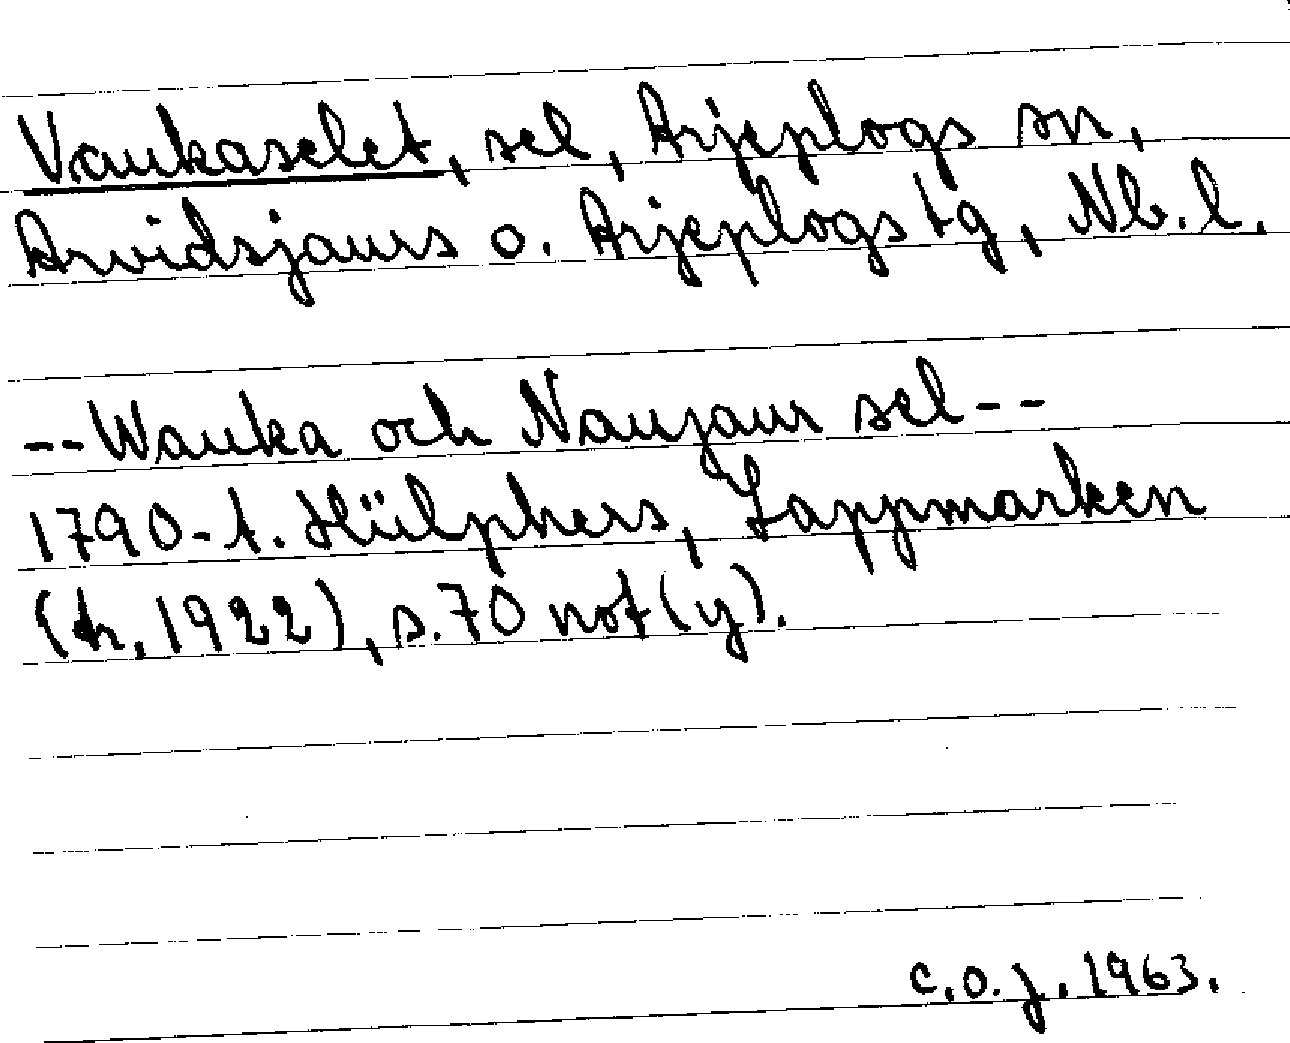 Vaukaselet, sel, Arjeplogs sn,
Arvidsjaurs o. Arjeplogs tg, Nb. l.
-- Wauka och Naujaur sel --
1790-t. Hülphers, Lappmarken
(tr. 1922), s. 70 not (y).
C. O. J. 1963.